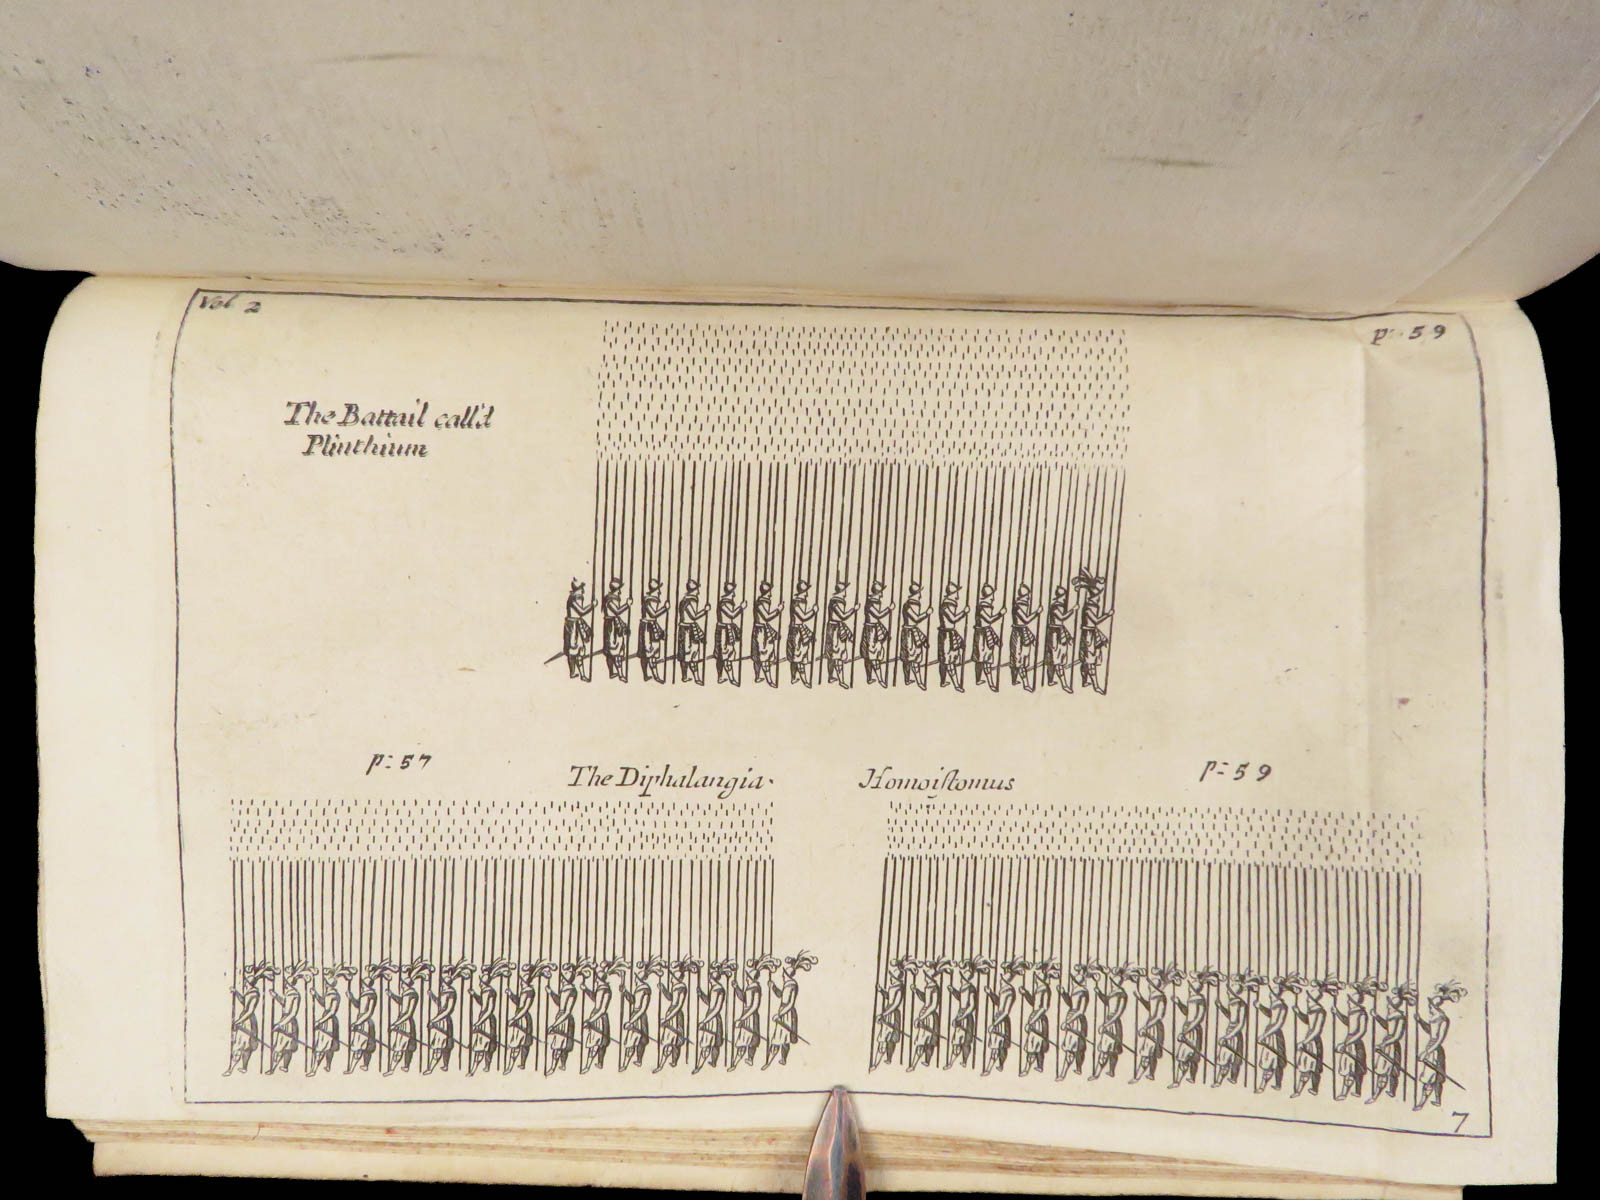 Vol 2
p: 59
The Battail call'd
Plinthium
p: 57
The Diphalangia.
Homoiſtomus
p: 59
7